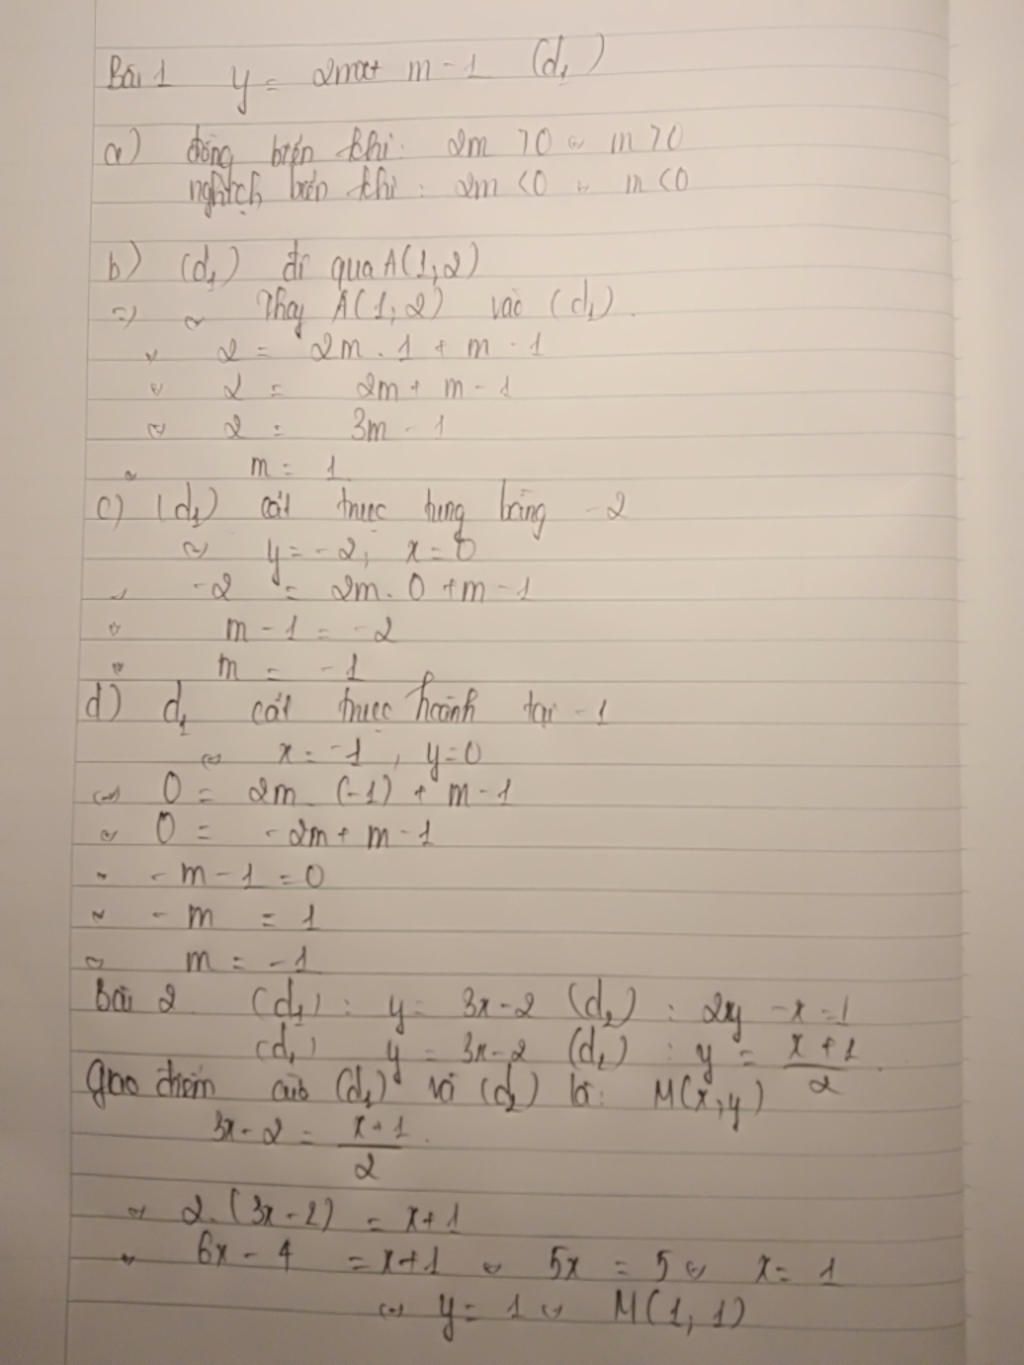 Bài 1 y = 2mx + m - 1 (d₁)
a) đồng biến khi: 2m > 0 ⇔ m > 0
nghịch biến khi: 2m < 0 ⇔ m < 0
b) (d₁) đi qua A(1,2)
=> ⇔ Thay A(1,2) vào (d₁).
⇔ 2 = 2m . 1 + m - 1
⇔ 2 = 2m + m - 1
⇔ 2 = 3m - 1
⇔ m = 1
c) (d₁) cắt trục tung bằng -2
⇔ y = -2, x = 0
⇔ -2 = 2m . 0 + m - 1
⇔ m - 1 = -2
⇔ m = -1
d) d₁ cắt trục hoành tại -1
⇔ x = -1, y = 0
⇔ 0 = 2m . (-1) + m - 1
⇔ 0 = -2m + m - 1
⇔ -m - 1 = 0
⇔ -m = 1
⇔ m = -1
Bài 2 (d₁) : y = 3x - 2 (d₂) : 2y - x = 1
(d₁) y = 3x - 2 (d₂) : y = (x + 1)/2.
Giao điểm của (d₁) và (d₂) là: M(x,y)
3x - 2 = (x + 1)/2.
⇔ 2.(3x - 2) = x + 1
⇔ 6x - 4 = x + 1 ⇔ 5x = 5 ⇔ x = 1
⇔ y = 1 ⇔ M(1,1)